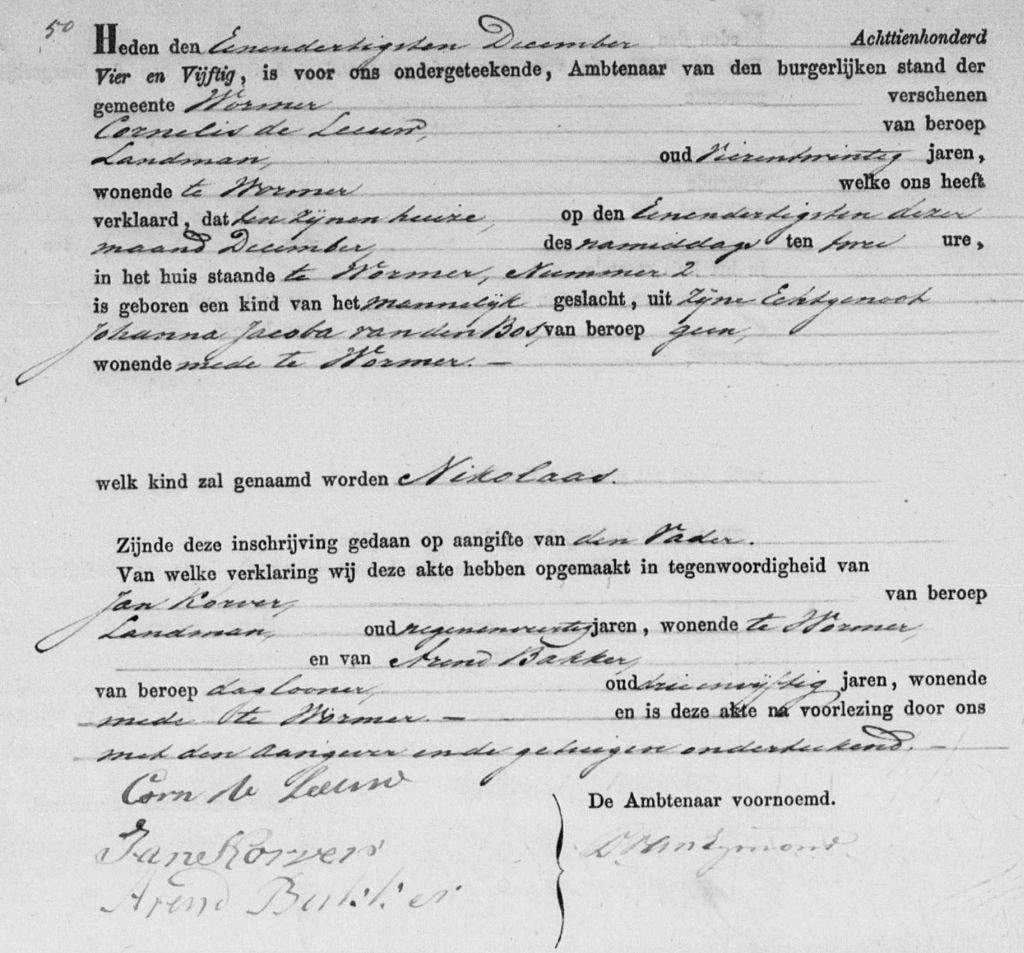 50
Heden den Eenendertigsten December Achttienhonderd
Vier en Vijftig, is voor ons ondergeteekende, Ambtenaar van den burgerlijken stand der
gemeente Wormer verschenen
Cornelis de Leeuw, van beroep
Landman, oud Vierentwintig jaren,
wonende te Wormer welke ons heeft
verklaard, dat ten zijnen huize, op den Eenendertigsten dezer
maand December, des namiddags ten twee ure,
in het huis staande te Wormer, Nummer 2
is geboren een kind van het mannelijk geslacht, uit zijne Echtgenoot
Johanna Jacoba van den Bos, van beroep geen,
wonende mede te Wormer. —
welk kind zal genaamd worden Nikolaas.
Zijnde deze inschrijving gedaan op aangifte van den Vader.
Van welke verklaring wij deze akte hebben opgemaakt in tegenwoordigheid van
Jan Korver, van beroep
Landman, oud negenenveertig jaren, wonende te Wormer,
en van Arend Bakker,
van beroep daglooner, oud drieenvijftig jaren, wonende
mede te Wormer. — en is deze akte na voorlezing door ons
met den aangever en de getuigen onderteekend. —
Corn de Leeuw
De Ambtenaar voornoemd.
Jane Korver
Arend Bakker